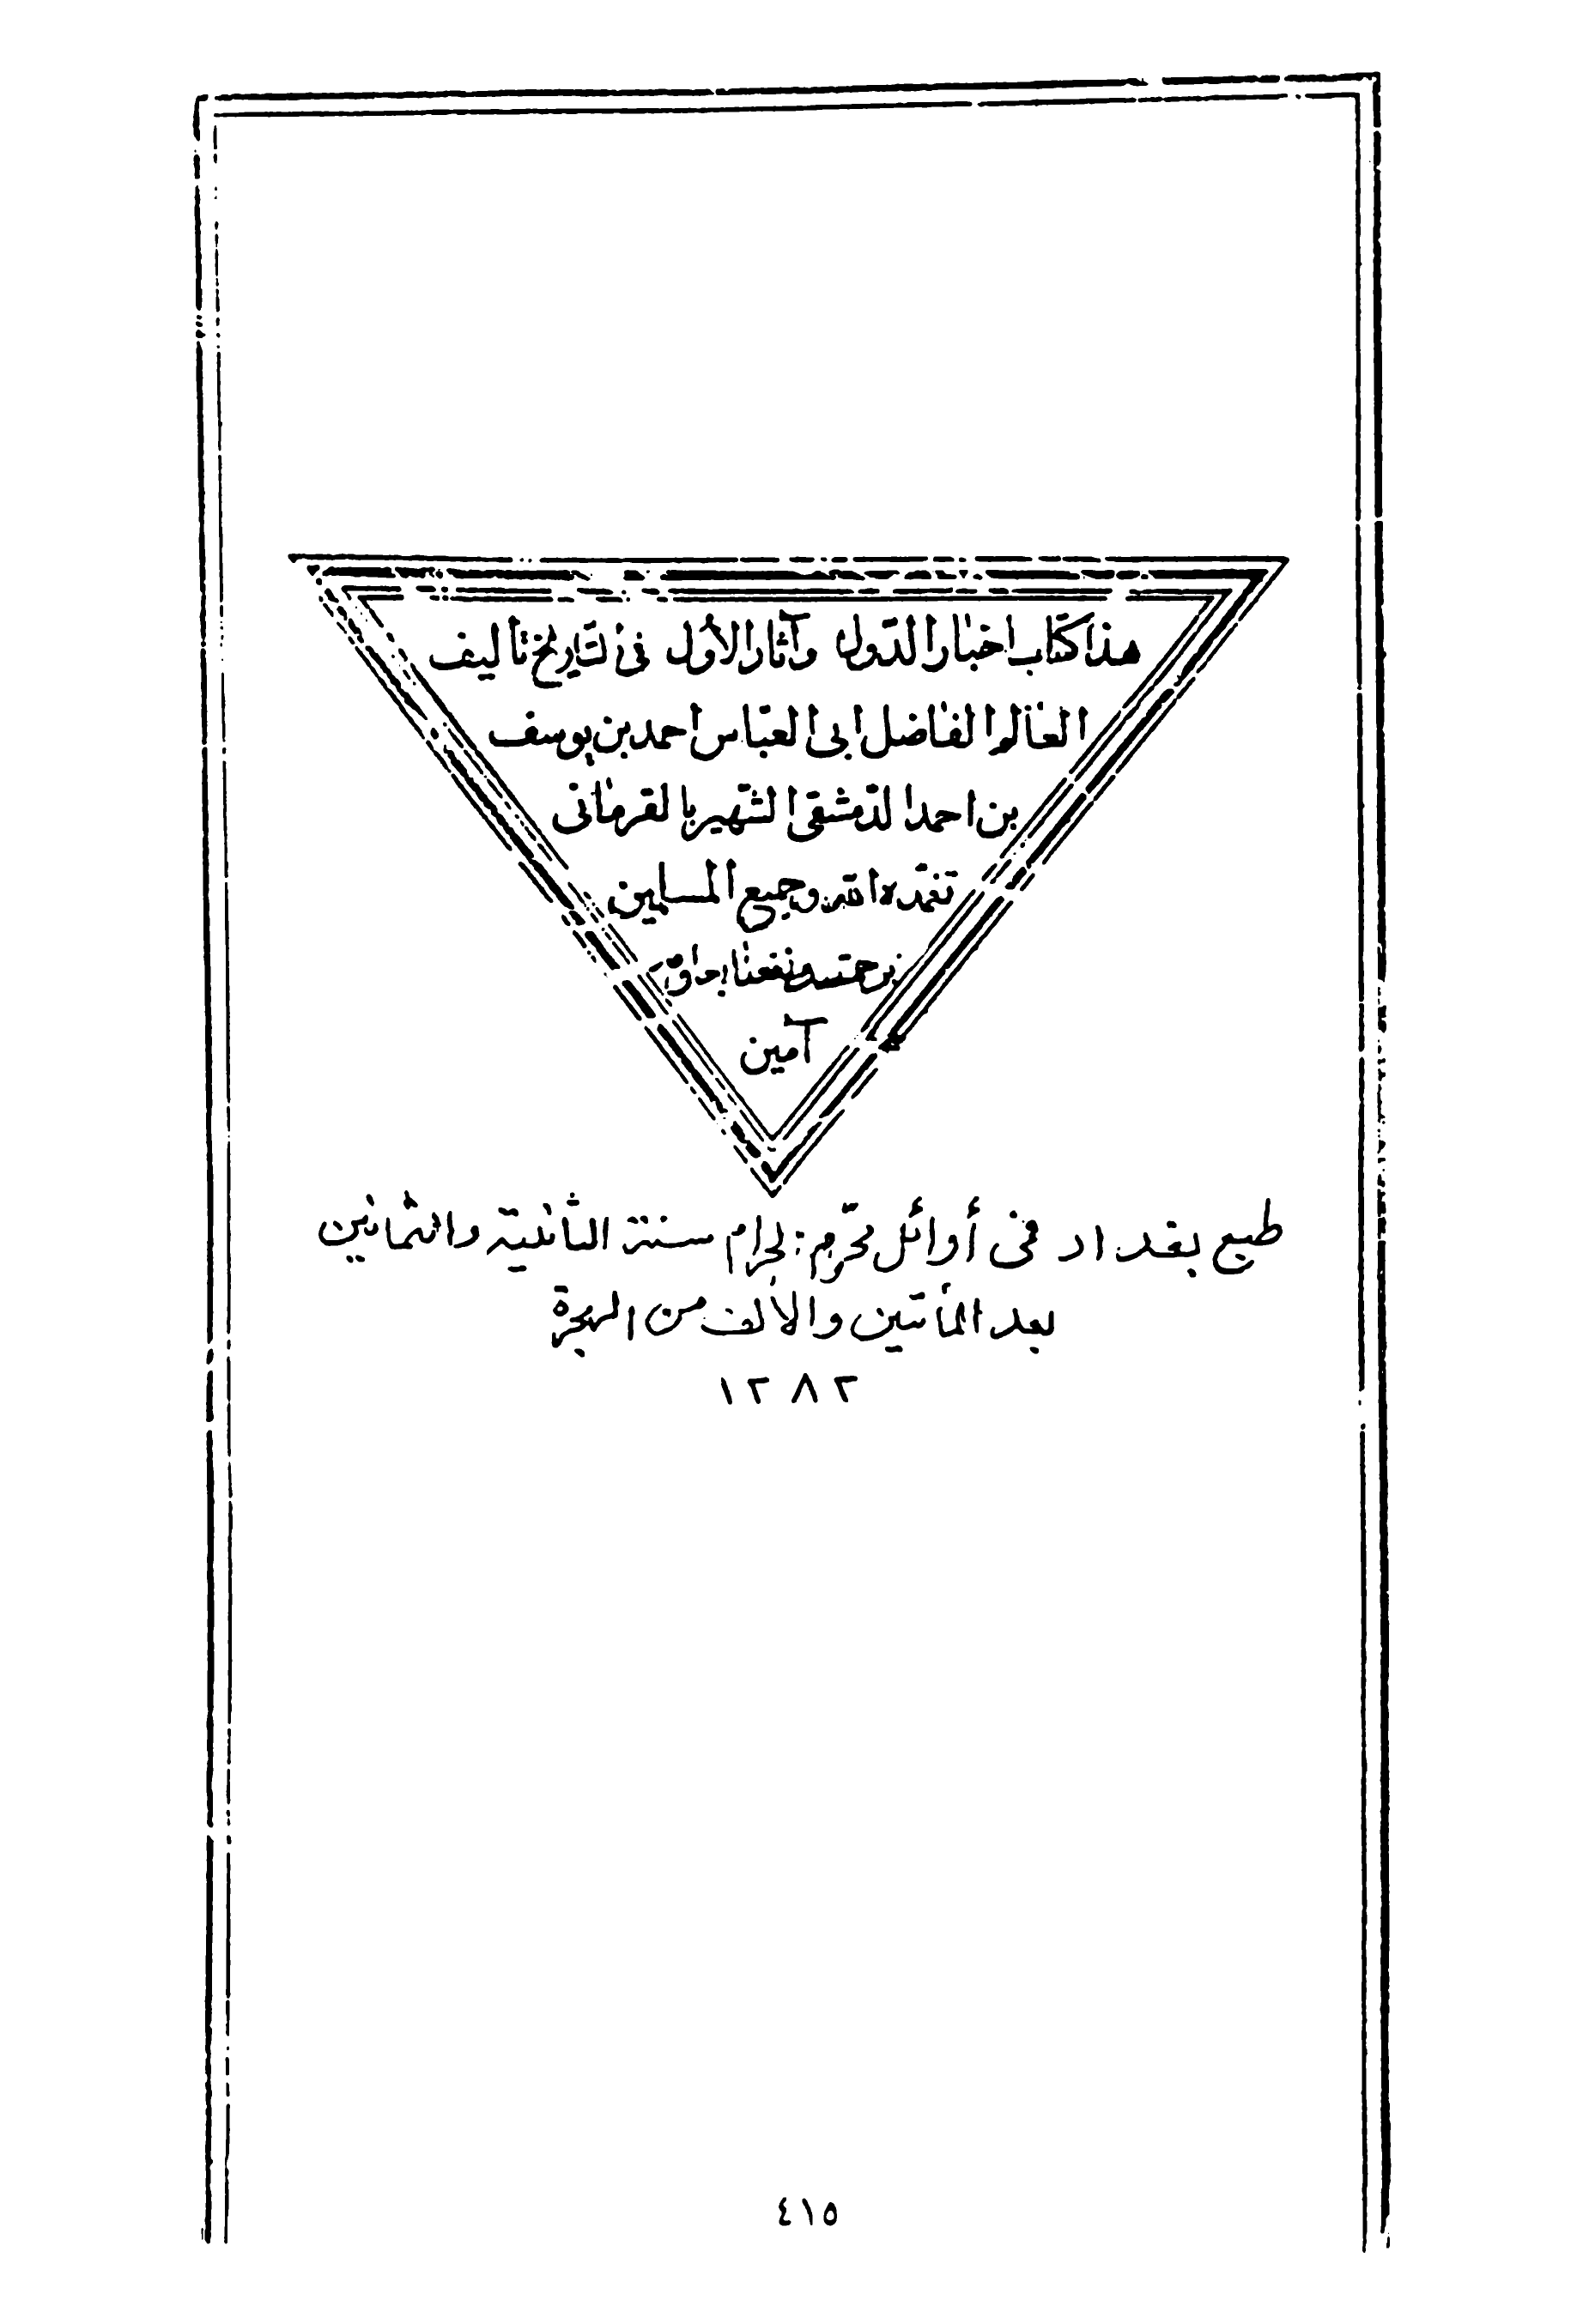 هذا كتاب اخبار الدّول وآثار الأول فى التاريخ تأليف
العالم الفاضل ابى العبّاس احمد بن يوسف
بن احمد الدّمشقى الشّهير بالقرمانى
تغمّده الله وجميع المسلمين
برحمته ونفعنا
آمين
طبع بغداد فى أوائل محرّم الحرام سنة الثانية والثمانين
بعد المأتين والألف من الهجرة
١٢٨٢
٤١٥